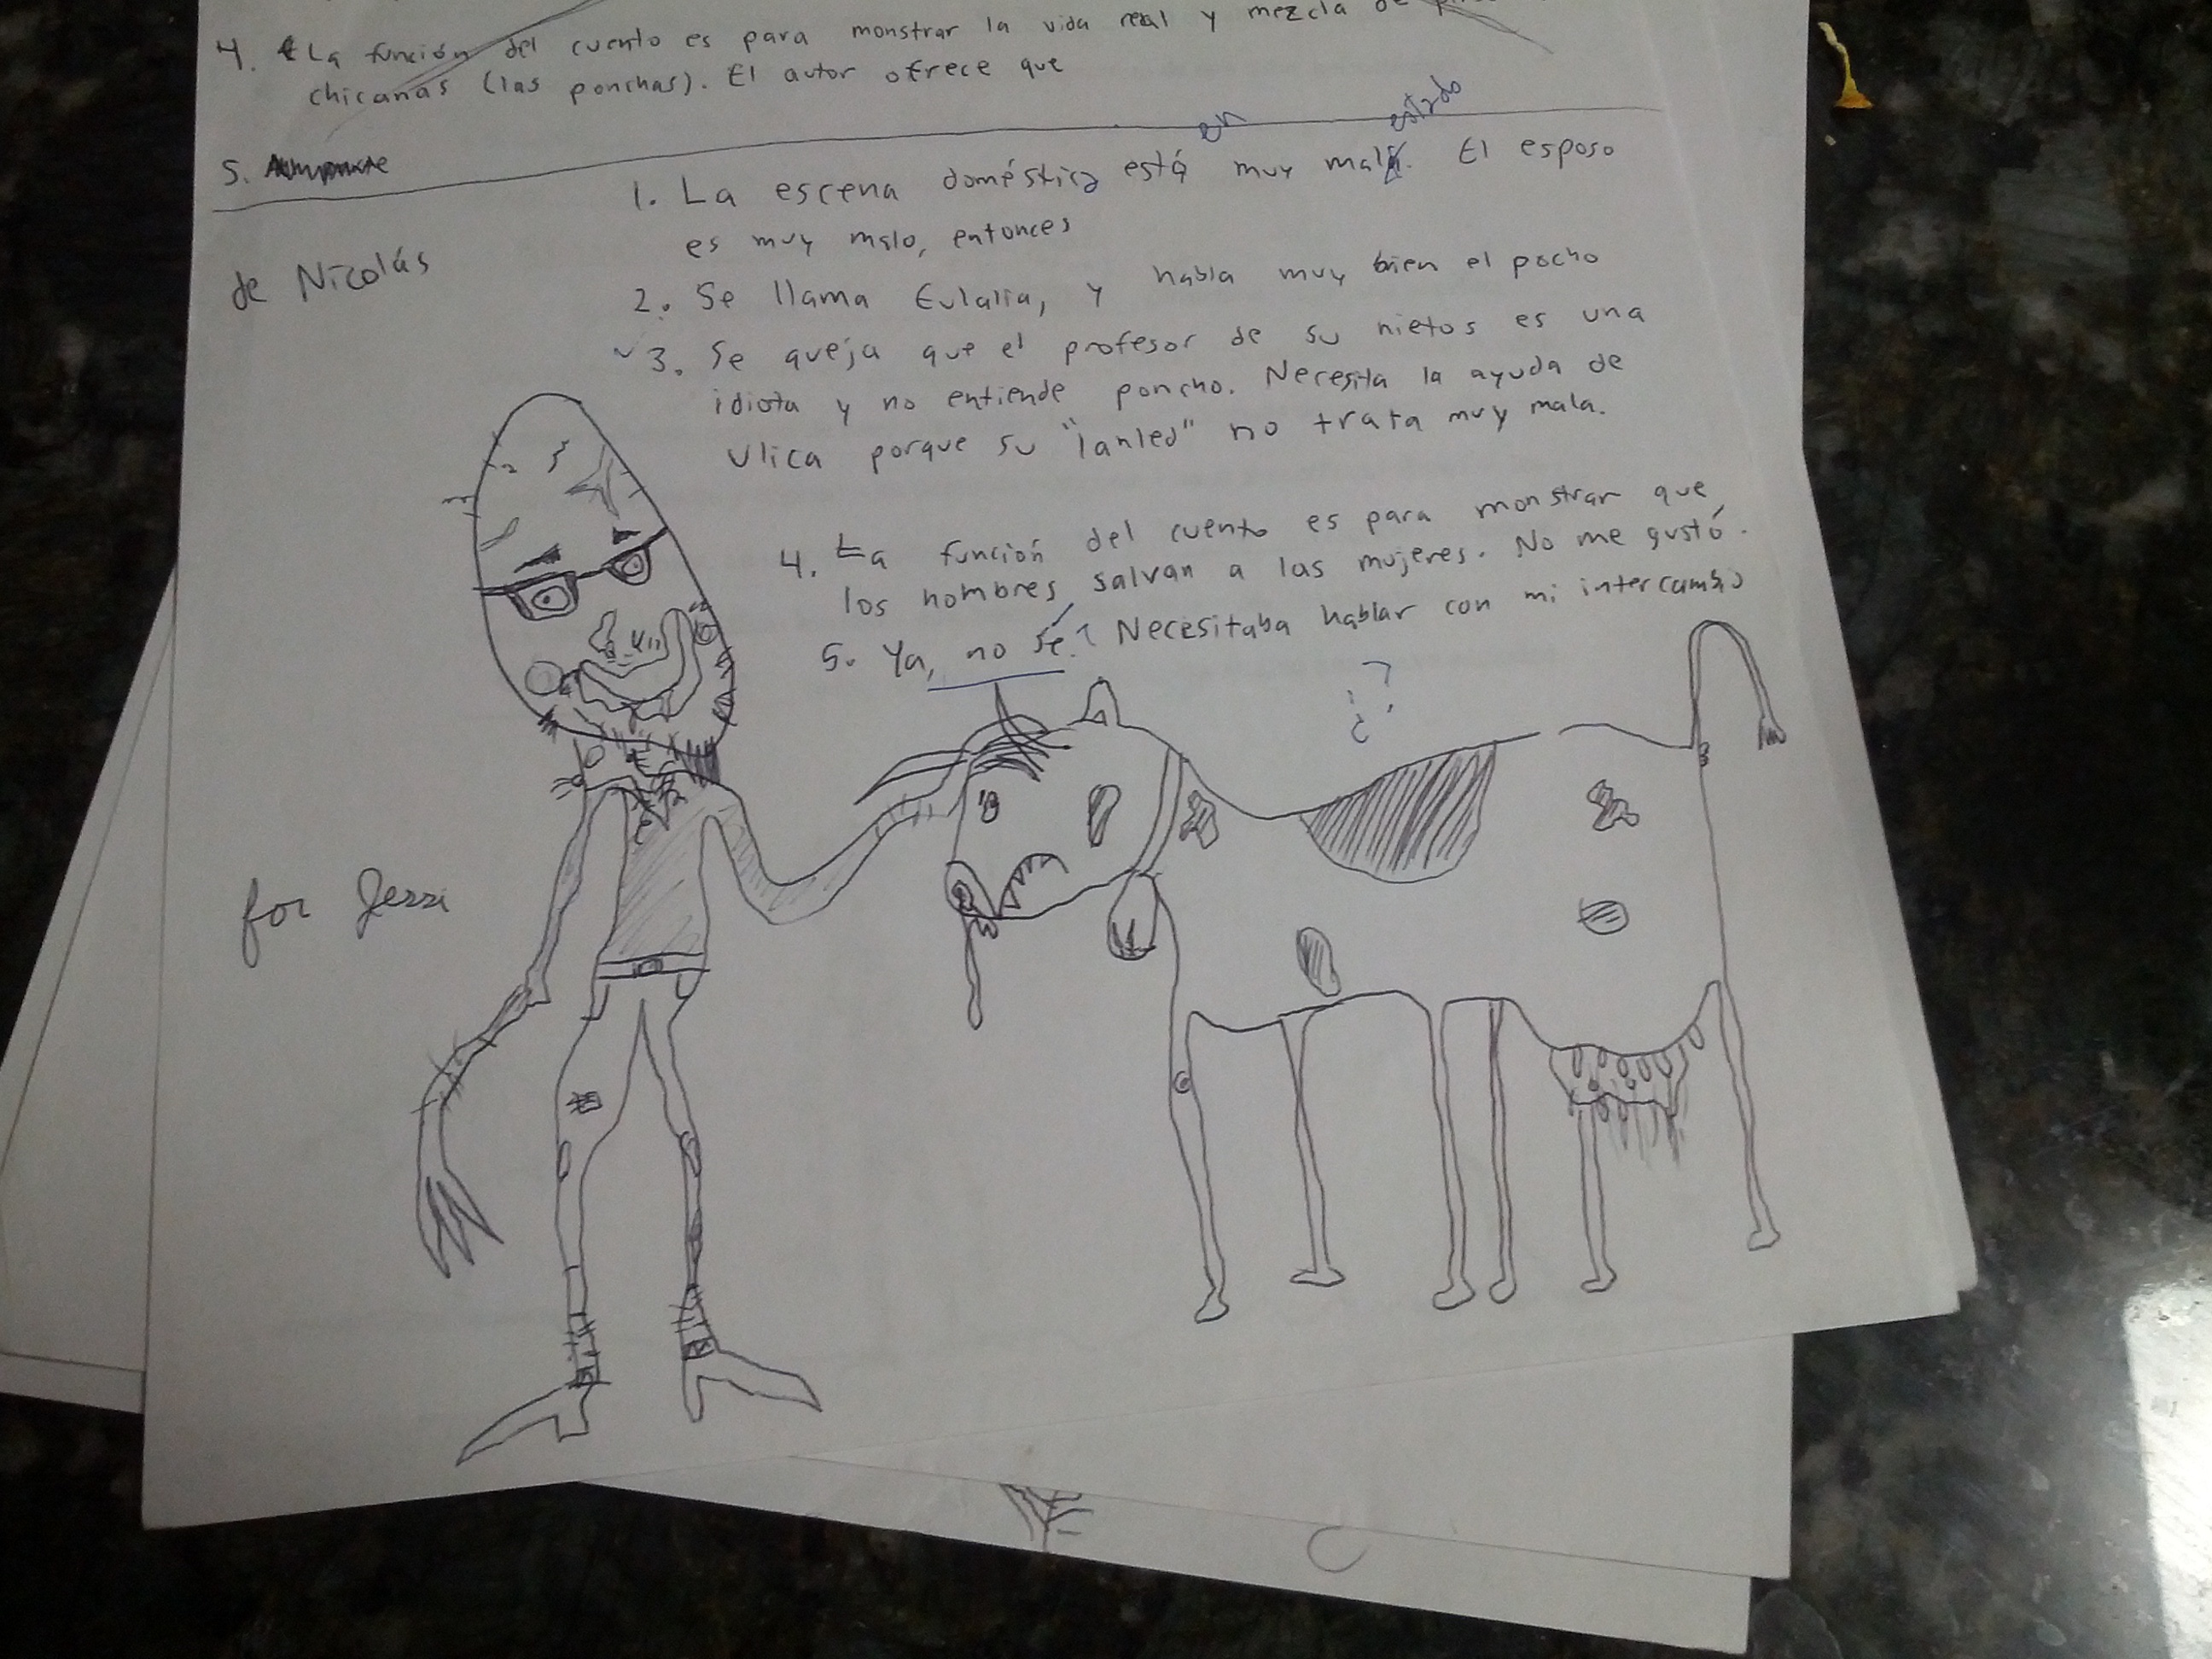 4. La función del cuento es para monstrar la vida real y mezcla de
chicanas (las ponchas). El autor ofrece que
5.
en estado
1. La escena doméstica está muy mal. El esposo
es muy malo, entonces
de Nicolás
2. Se llama Eulalia, y habla muy bien el pocho
3. Se queja que el profesor de su nietos es una
idiota y no entiende poncho. Necesita la ayuda de
Ulica porque su "lanled" no trata muy mala.
4. La función del cuento es para monstrar que
los hombres salvan a las mujeres. No me gustó.
5. Ya, no sé? Necesitaba hablar con mi intercambio
¿?
for Jessi